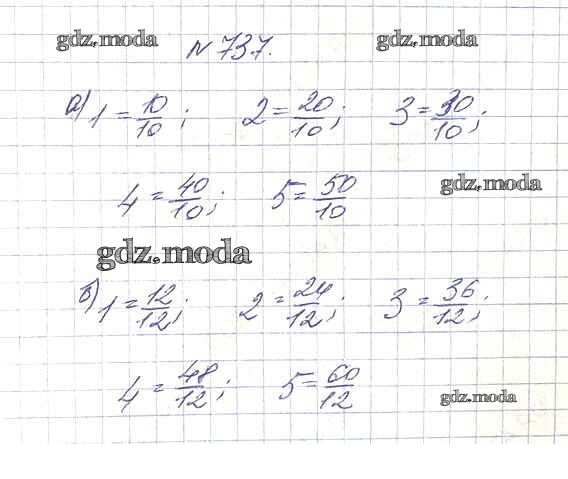 gdz.moda N 737. gdz.moda
а) 1 = 10/10; 2 = 20/10; 3 = 30/10;
4 = 40/10; 5 = 50/10 gdz.moda
gdz.moda
б) 1 = 12/12; 2 = 24/12; 3 = 36/12;
4 = 48/12; 5 = 60/12 gdz.moda